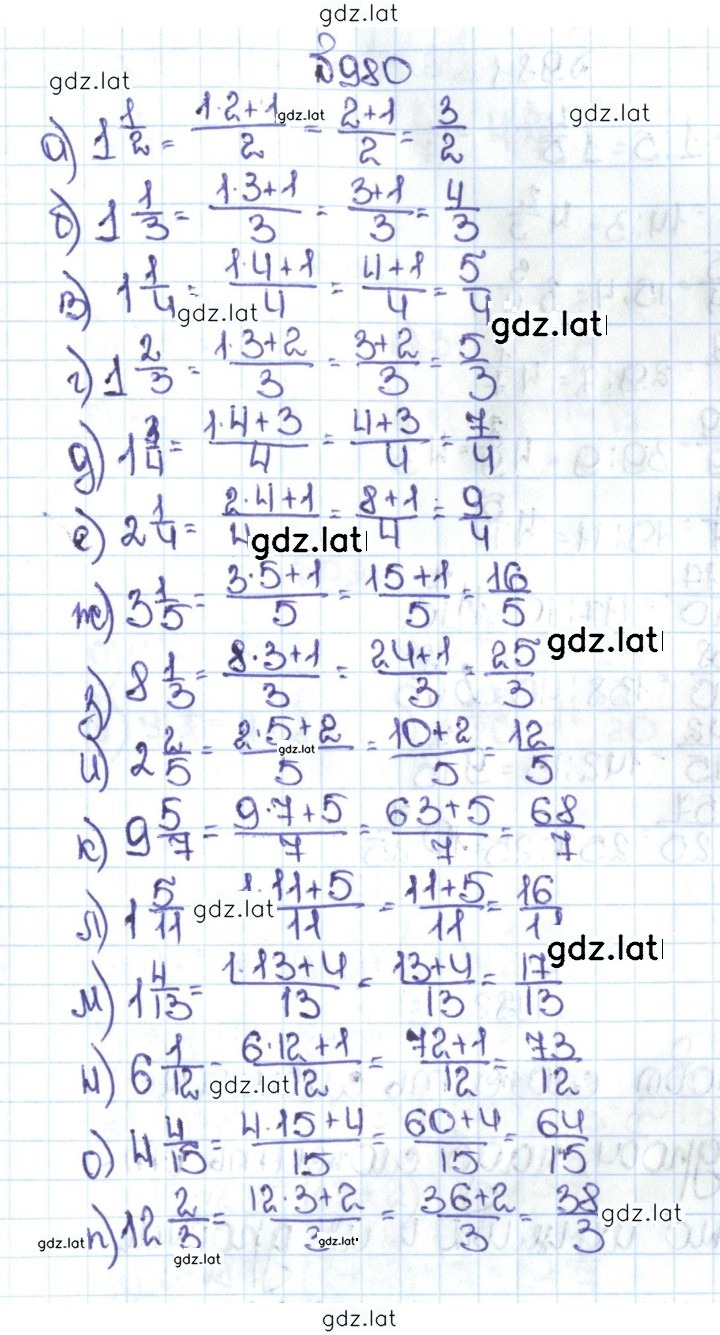 gdz.lat
№980
gdz.lat
gdz.lat
а) 1 1/2 = (1·2+1)/2 = (2+1)/2 = 3/2
gdz.lat
б) 1 1/3 = (1·3+1)/3 = (3+1)/3 = 4/3
в) 1 1/4 = (1·4+1)/4 = (4+1)/4 = 5/4
gdz.lat
gdz.lat
г) 1 2/3 = (1·3+2)/3 = (3+2)/3 = 5/3
д) 1 3/4 = (1·4+3)/4 = (4+3)/4 = 7/4
е) 2 1/4 = (2·4+1)/4 = (8+1)/4 = 9/4
gdz.lat
ж) 3 1/5 = (3·5+1)/5 = (15+1)/5 = 16/5
gdz.lat
з) 8 1/3 = (8·3+1)/3 = (24+1)/3 = 25/3
и) 2 2/5 = (2·5+2)/5 = (10+2)/5 = 12/5
gdz.lat
к) 9 5/7 = (9·7+5)/7 = (63+5)/7 = 68/7
л) 1 5/11 gdz.lat (1·11+5)/11 = (11+5)/11 = 16/11
gdz.lat
м) 1 4/13 = (1·13+4)/13 = (13+4)/13 = 17/13
н) 6 1/12 = (6·12+1)/12 = (72+1)/12 = 73/12
gdz.lat
о) 4 4/15 = (4·15+4)/15 = (60+4)/15 = 64/15
п) 12 2/3 = (12·3+2)/3 = (36+2)/3 = 38/3
gdz.lat
gdz.lat
gdz.lat
gdz.lat
gdz.lat